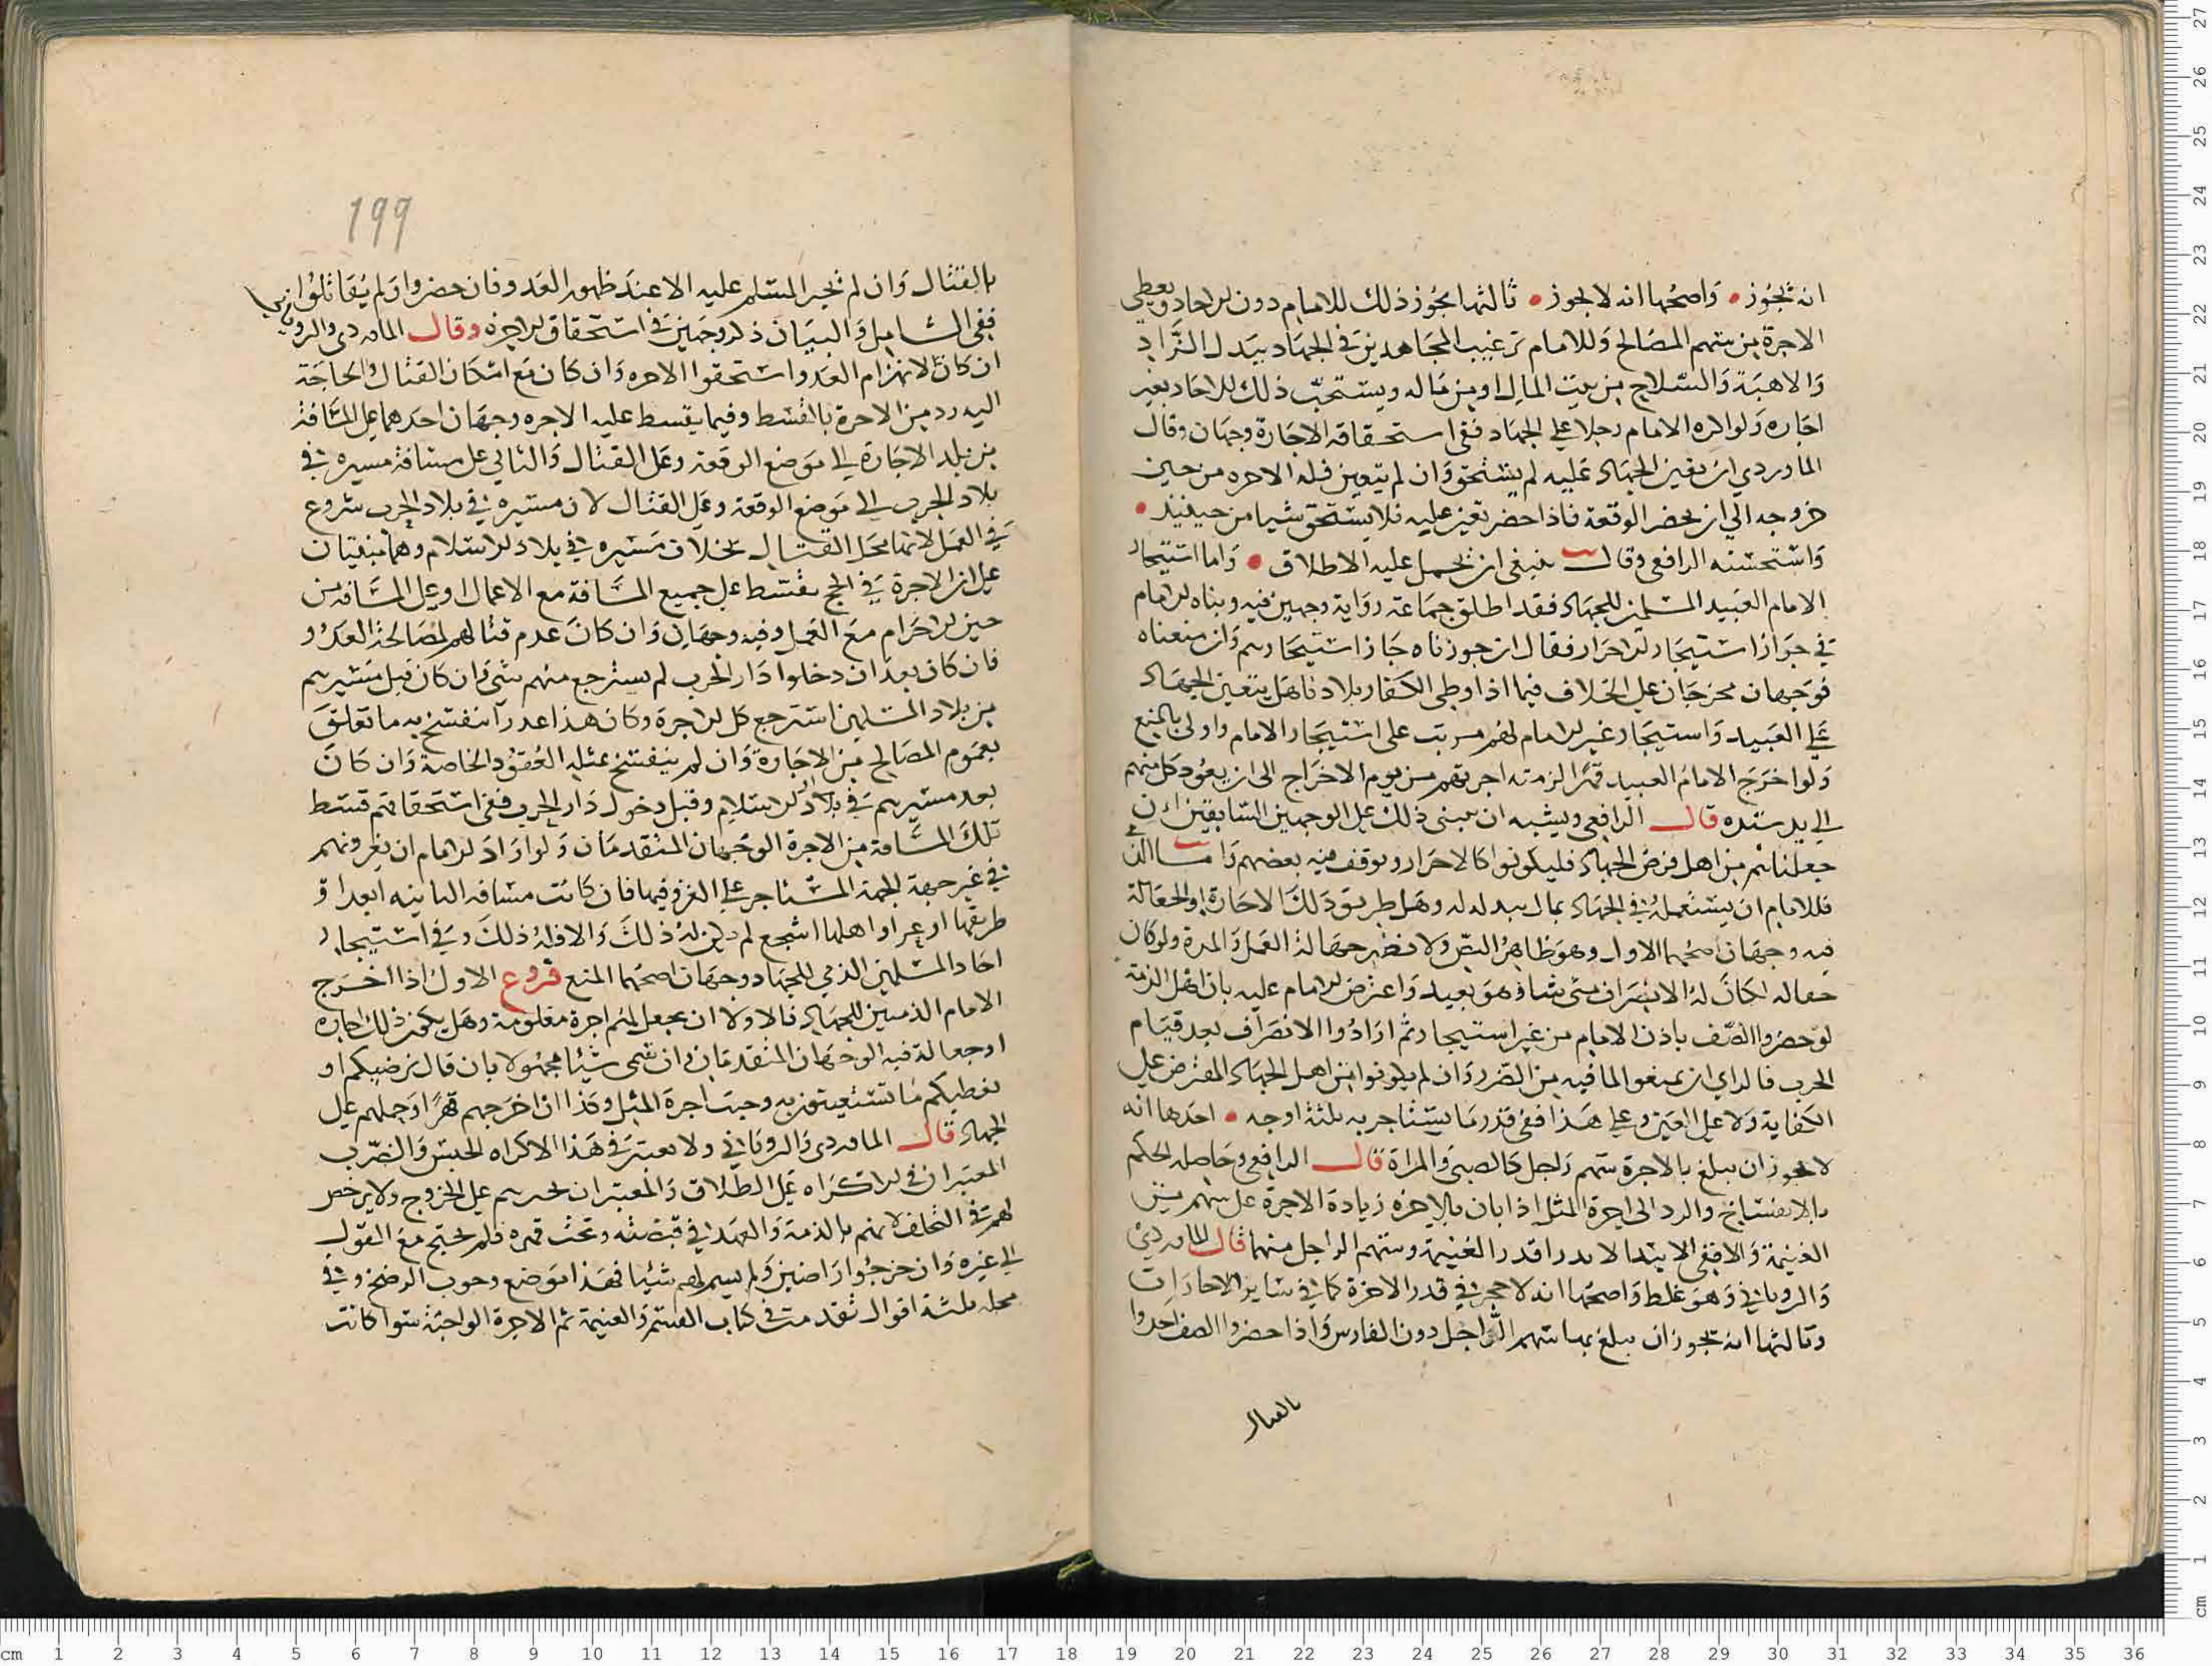 انه تجوز • واصحهما انه لا يجوز • ثالثها يجوز ذلك للامام دون الاحاد ويعطى
الاجرة من سهم المصالح وللامام ترغيب المجاهدين في الجهاد ببذل الزاد
والاهبة والسلاح من بيت المال او من ماله ويستحب ذلك للاحاد بغير
اجاره ولو اكره الامام رجلا على الجهاد ففي استحقاقه الاجارة وجهان وقال
الماوردي ان تعين الجهاد عليه لم يستحق وان لم يتعين فله الاجره من حين
خروجه الى ان يحضر الوقعة فاذا حضر تعين عليه فلا يستحق شيا من حينئذ •
واستحسنه الرافعي وقال ينبغي ان يحمل عليه الاطلاق • واما استيجار
الامام العبيد المسلمين للجهاد فقد اطلق جماعة رواية وجهين فيه وبناه الامام
في جواز استيجار الاحرار فقال ان جوزناه جاز استيجارهم وان منعناه
فوجهان مخرجان على الخلاف فيما اذا وطى الكفار بلادنا هل يتعين الجهاد
على العبيد واستيجار غير الامام لهم مرتب على استيجار الامام واولى بالمنع
ولو اخرج الامام العبيد قهرا لزمته اجرتهم من يوم الاخراج الى ان يعود كل منهم
الى يد سيده قال الرافعي ويشبه ان يبنى ذلك على الوجهين السابقين ان
جعلناهم من اهل فرض الجهاد فليكونوا كالاحرار وتوقف فيه بعضهم واما
فللامام ان يستعمله في الجهاد بمال يبذله له وهل طريق ذلك الاجارة او الجعالة
فيه وجهان اصحهما الاول وهو ظاهر النص ولا تضر جهالة العمل والمدة ولو كان
جعاله لكان له الانصراف متى شا وهو بعيد واعترض الامام عليه بان اهل الذمة
لو حضروا الصف باذن الامام من غير استيجار ثم ارادوا الانصراف بعد قيام
الحرب فالراي ان يمنعوا لما فيه من الضرر وان لم يكونوا من اهل الجهاد المفترض على
الكفاية ولا على العين وعلى هذا ففي قدر ما يستاجر به ثلثة اوجه • احدها انه
لا يجوز ان يبلغ بالاجرة سهم راجل كالصبي والمراة قال الرافعي وحاصله الحكم
بالانفساخ والرد الى اجرة المثل اذا بان بالاخره زيادة الاجرة على سهم من
الغنيمة والا ففي الابتدا لا يدرا قدر الغنيمة وسهم الراجل منها قال الماوردي
والروياني وهو غلط واصحهما انه لا حجر في قدر الاجرة كما في ساير الاجارات
وثالثها انه تجوز ان يبلغ بها سهم الراجل دون الفارس واذا حضروا الصف اجروا
بالقتال
199
بالقتال وان لم تخبر المسلم عليه الا عند ظهور العدو فان حضروا ولم يقاتلوا
ففي الشامل والبيان ذكر وجهين في استحقاق الاجره وقال الماوردي والروياني
ان كان لانهزام العدو استحقوا الاجره وان كان مع امكان القتال والحاجة
اليه رد من الاجرة بالقسط وفيما يقسط عليه الاجره وجهان احدهما على المسافة
من بلد الاجارة الى موضع الوقعة وعلى القتال والثاني على مسافة مسيره في
بلاد الحرب الى موضع الوقعة وعلى القتال لان مسيره في بلاد الحرب شروع
في العمل لانها محل القتال بخلاف مسيره في بلاد الاسلام وهما مبنيان
على ان الاجرة في الحج تقسط على جميع المسافة مع الاعمال او على المسافة من
حين الاحرام مع العمل وفيه وجهان وان كان عدم قتالهم لمصالحة العدو
فان كان بعد ان دخلوا دار الحرب لم يسترجع منهم شي وان كان قبل مسيرهم
من بلاد المسلمين استرجع كل الاجرة وكان هذا عذرا ينفسخ به ما تعلق
بعموم المصالح من الاجارة وان لم ينفسخ بمثله العقود الخاصة وان كان
بعد مسيرهم في بلاد الاسلام وقبل دخول دار الحرب ففي استحقاقهم قسط
تلك المسافة من الاجرة الوجهان المتقدمان ولو اراد الامام ان يغزو بهم
في غير جهة الجهة المستاجر على الغزو فيها فان كانت مسافه الثانيه ابعد او
طريقها اوعر او اهلها اشجع لم يكن له ذلك والا فله ذلك وفي استيجار
احاد المسلمين الذمي للجهاد وجهان اصحهما المنع فروع الاول اذا اخرج
الامام الذميين للجهاد فالاولا ان يجعل لهم اجرة معلومة وهل يكون ذلك اجاره
او جعالة فيه الوجهان المتقدمان وان سمى شيئا مجهولا بان قال نرضيكم او
نعطيكم ما تستعينون به وجبت اجرة المثل وكذا ان اخرجهم قهرا وحملهم على
الجهاد قال الماوردي والروياني ولا يعتبر في هذا الاكراه الحبس والضرب
المعتبران في الاكراه على الطلاق والمعتبر ان يجبرهم على الخروج ولا يرخص
لهم في التخلف لانهم بالذمة والعهد في قبضته وتحت قهره فلم يحتج مع القول
الى غيره وان خرجوا راضين ولم يسم لهم شيئا فهذا موضع وجوب الرضخ وفي
محله ثلثة اقوال تقدمت في كتاب القسم والغنيمة ثم الاجرة الواجبة سوا كانت